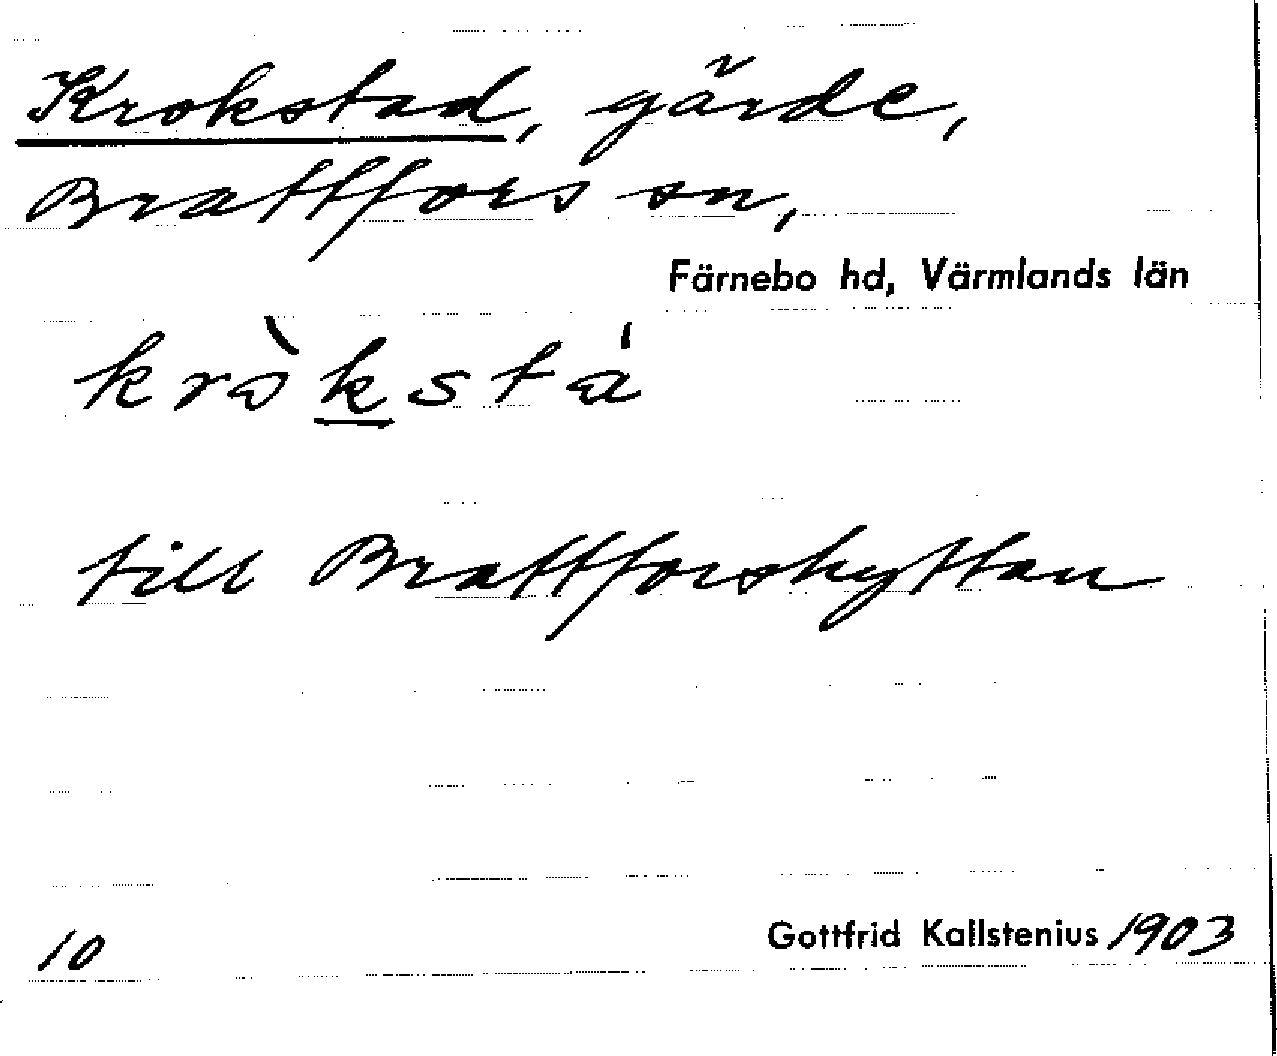 Krokstad, gärde,
Brattfors sn,
Färnebo hd, Värmlands län
kròkstá
till Brattforshyttan
10
Gottfrid Kallstenius 1903